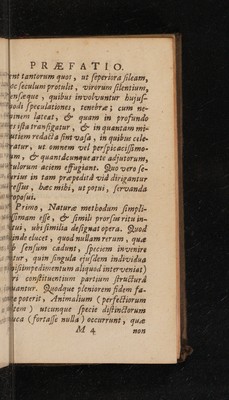 PRÆFATIO.
ent tantorum quot, ut seperiora sileam,
oc seculum protulit, virorum silentium,
ensæque, quibus involvuntur hujus-
odi speculationes, tenebræ; cum ne-
inem lateat, & quam in profundo
es ista transigatur, & in quantam mi-
utiem redacta sint vasa, in quibus cele-
ratur, ut omnem vel perspicacissimo-
um, & quantâcunque arte adjutorum,
culorum aciem effugiant. Quo vero se-
urius in tam præpeditâ viâ dirigantur
ressus, hæc mihi, ut potui, servanda
roposui.
Primo, Naturæ methodum simpli-
issimam esse, & simili prorsus ritu in-
tui, ubi similia designat opera. Quod
inde elucet, quod nullam rerum, quæ
b sensum cadunt, speciem invenire
tur, quin singula ejusdem individua
nisi impedimentum aliquod interveniat)
ri constituentium partium structurâ
uantur. Quodque pleniorem fidem fa-
e poterit, Animalium (perfectiorum
tem) utcunque specie distinctorum
uca (fortasse nulla) occurrunt, quæ
M 4 non